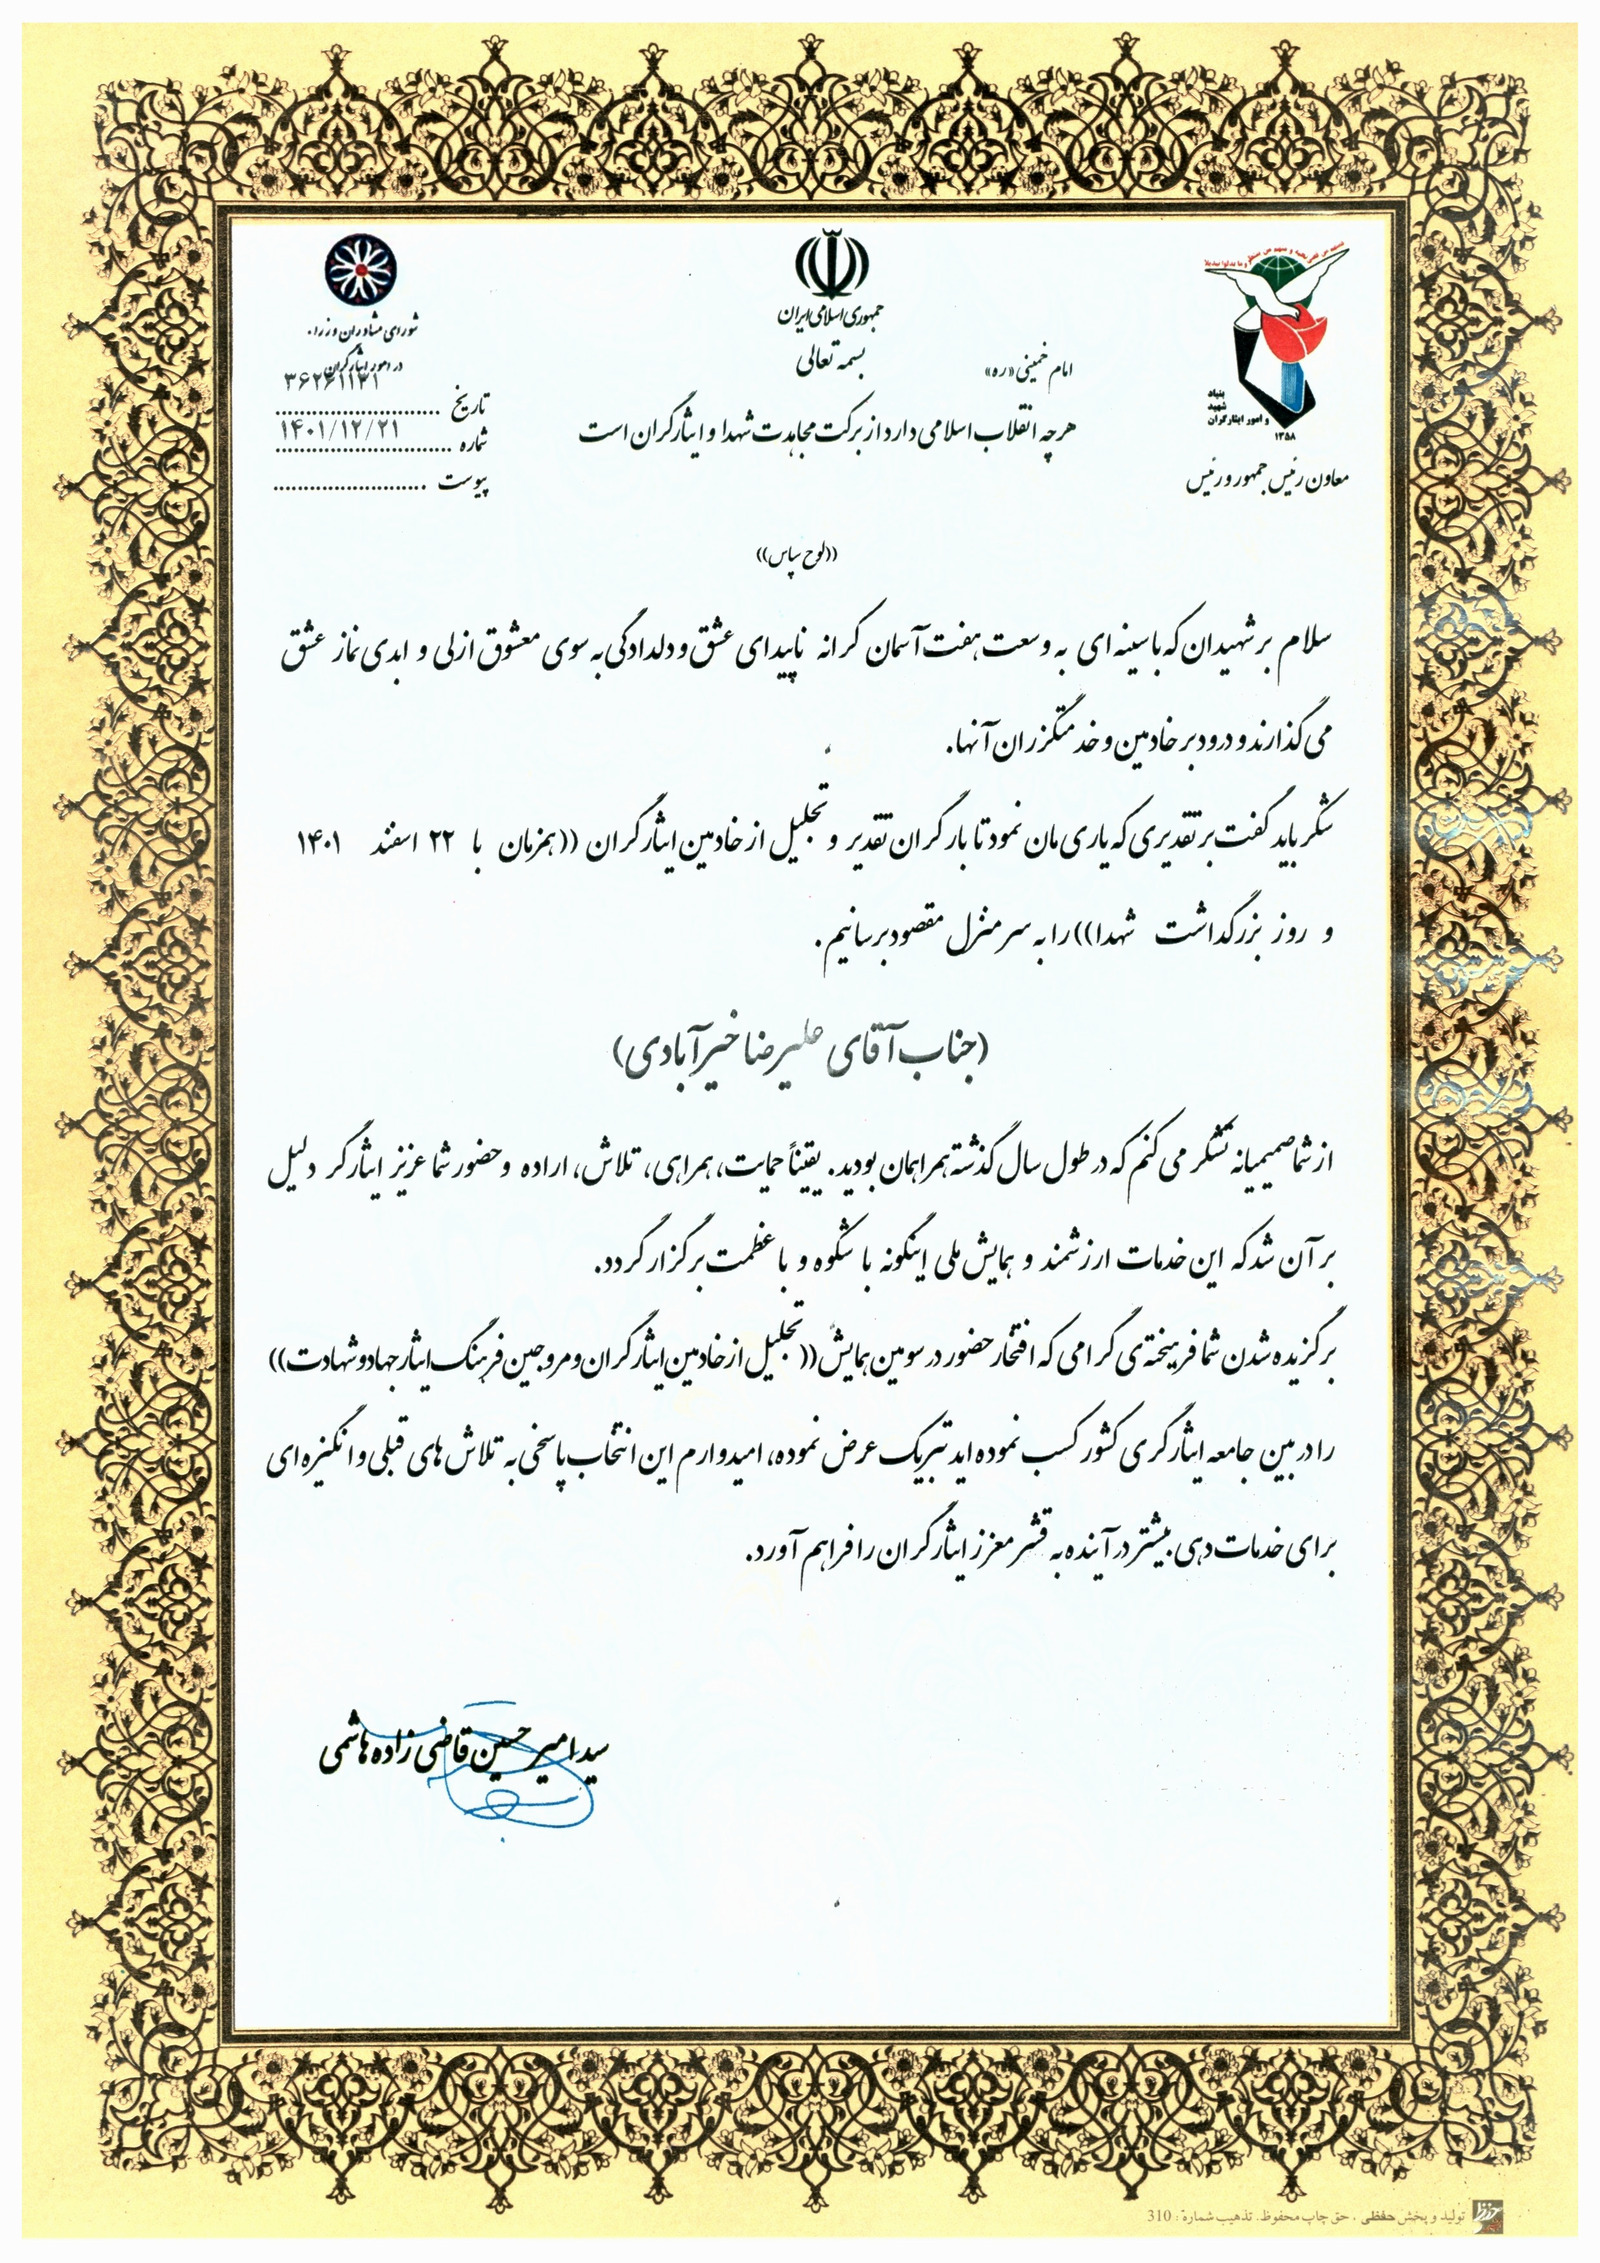 جمهوری اسلامی ایران
بسمه تعالی
امام خمینی «ره»
هرچه انقلاب اسلامی دارد از برکت مجاهدت شهدا و ایثارگران است
بنیاد
شهید
و امور ایثارگران
۱۳۵۸
معاون رئیس جمهور و رئیس
شورای مشاوران وزراء
در امور ایثارگران
۳۶۲۶۱۱۳۱
تاریخ ............
۱۴۰۱/۱۲/۲۱
شماره ............
پیوست ............
((لوح سپاس))
سلام بر شهیدان که با سینه ای به وسعت هفت آسمان کرانه ناپیدای عشق و دلدادگی به سوی معشوق ازلی و ابدی نماز عشق
می گذارند و درود بر خادمین و خدمتگزران آنها.
شکر باید گفت بر تقدیری که یاری مان نمود تا بار گران تقدیر و تجلیل از خادمین ایثارگران ((همزمان با ۲۲ اسفند ۱۴۰۱
و روز بزرگداشت شهدا)) را به سر منزل مقصود برسانیم.
(جناب آقای علیرضا خیرآبادی)
از شما صمیمیانه تشکر می کنم که در طول سال گذشته همراهمان بودید. یقیناً حمایت، همراهی، تلاش، اراده و حضور شما عزیز ایثارگر دلیل
بر آن شد که این خدمات ارزشمند و همایش ملی اینگونه با شکوه و با عظمت برگزار گردد.
برگزیده شدن شما فریخته ی گرامی که افتخار حضور در سومین همایش ((تجلیل از خادمین ایثارگران و مروجین فرهنگ ایثار جهاد و شهادت))
را در بین جامعه ایثارگری کشور کسب نموده اید تبریک عرض نموده، امیدوارم این انتخاب پاسخی به تلاش های قبلی و انگیزه ای
برای خدمات دهی بیشتر در آینده به قشر معزز ایثارگران را فراهم آورد.
سید امیرحسین قاضی زاده هاشمی
تولید و پخش حفظی ، حق چاپ محفوظ. تذهیب شماره : 310